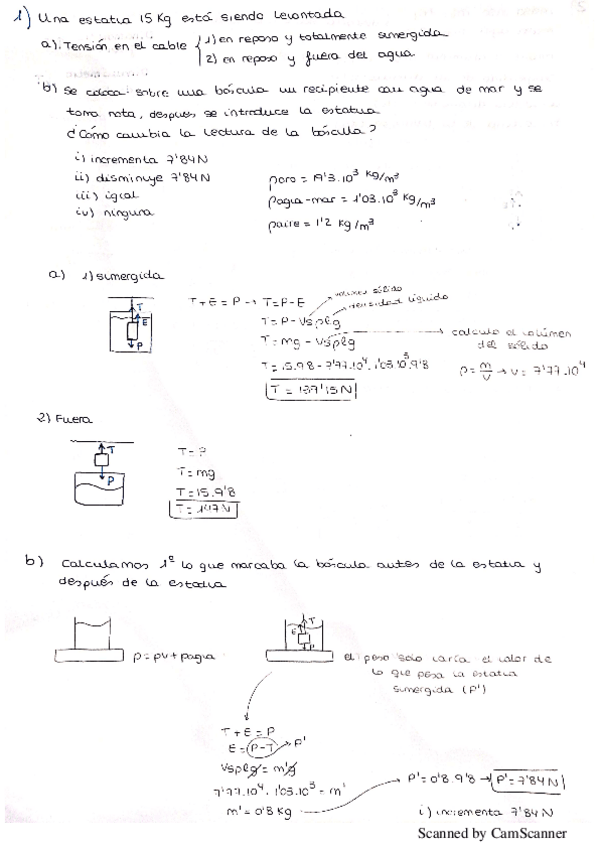 1) Una estatua 15 Kg está siendo levantada
a). Tensión en el cable { 1) en reposo y totalmente sumergida
2) en reposo y fuera del agua
b) Se coloca sobre una báscula un recipiente con agua de mar y se
toma nota, despues se introduce la estatua
¿Cómo cambia la lectura de la báscula?
i) incrementa 7'84N
ii) disminuye 7'84N
iii) igual
iv) ninguna
ρoro = 19'3·10³ Kg/m³
ρagua-mar = 1'03·10³ Kg/m³
ρaire = 1'2 Kg/m³
a) 1) sumergida
T
E
P
T+E = P → T=P-E
volumen sólido
densidad líquido
T= P - Vsρlg
T= mg - Vsρlg → calculo el volumen
del sólido
T= 15·9'8 - 7'77·10⁴·1'03·10³·9'8
ρ = m/v → v = 7'77·10⁴
T = 139'15N
2) Fuera
T
P
T= ?
T= mg
T= 15·9'8
T= 147N
b) Calculamos 1º lo que marcaba la báscula antes de la estatua y
después de la estatua
p = pv + pagua
T
E
P
el peso solo varía el valor de
lo que pesa la estatua
sumergida (P')
T + E = P
E = P-T → P'
Vsρlg = m'g
7'77·10⁴·1'03·10³ = m'
m' = 0'8 Kg → P' = 0'8·9'8 → P' = 7'84N
i) incrementa 7'84N
Scanned by CamScanner